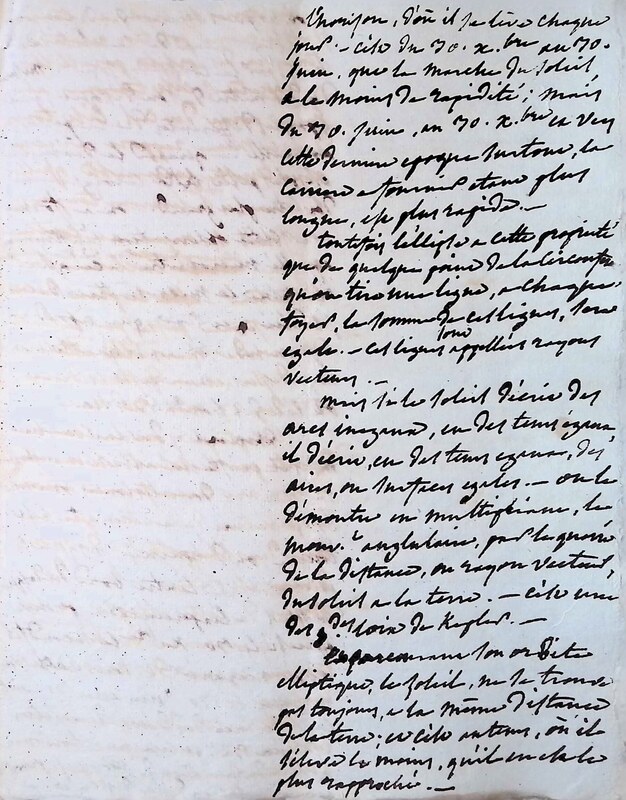 l'horison, d'où il se lève chaque
jour. - c'est du 30. x.bre au 30.
Juin, que la marche du soleil
a le moins de rapidité; mais
du 30. Juin, au 30. x.bre et vers
cette derniere epoque surtout, la
carriere a fournir etant plus
longue, est plus rapide. -
toutefois l'ellipse a cette proprieté
que de quelque point de la circonf.ce
qu'on tire une ligne, a chaque
foyer, la somme de ces lignes, sera
egale. - ces lignes sont appellées rayons
vecteurs. -
mais si le soleil décrit des
arcs inegaux, en des tems égaux
il décrit, en des tems egaux, des
aires, ou surfaces egales. - on le
démontre en multipliant, le
mouv.t anglulaire, par le quarré
de la distance, ou rayon vecteur,
du soleil a la terre. - c'est une
des loix de Kepler. -
En parcourant son orbite
elliptique, le soleil, ne se trouve
pas toujours, a la même distance
de la terre; et c'est au tems, où il
s'éleve le moins, qu'il en est le
plus rapproché. -